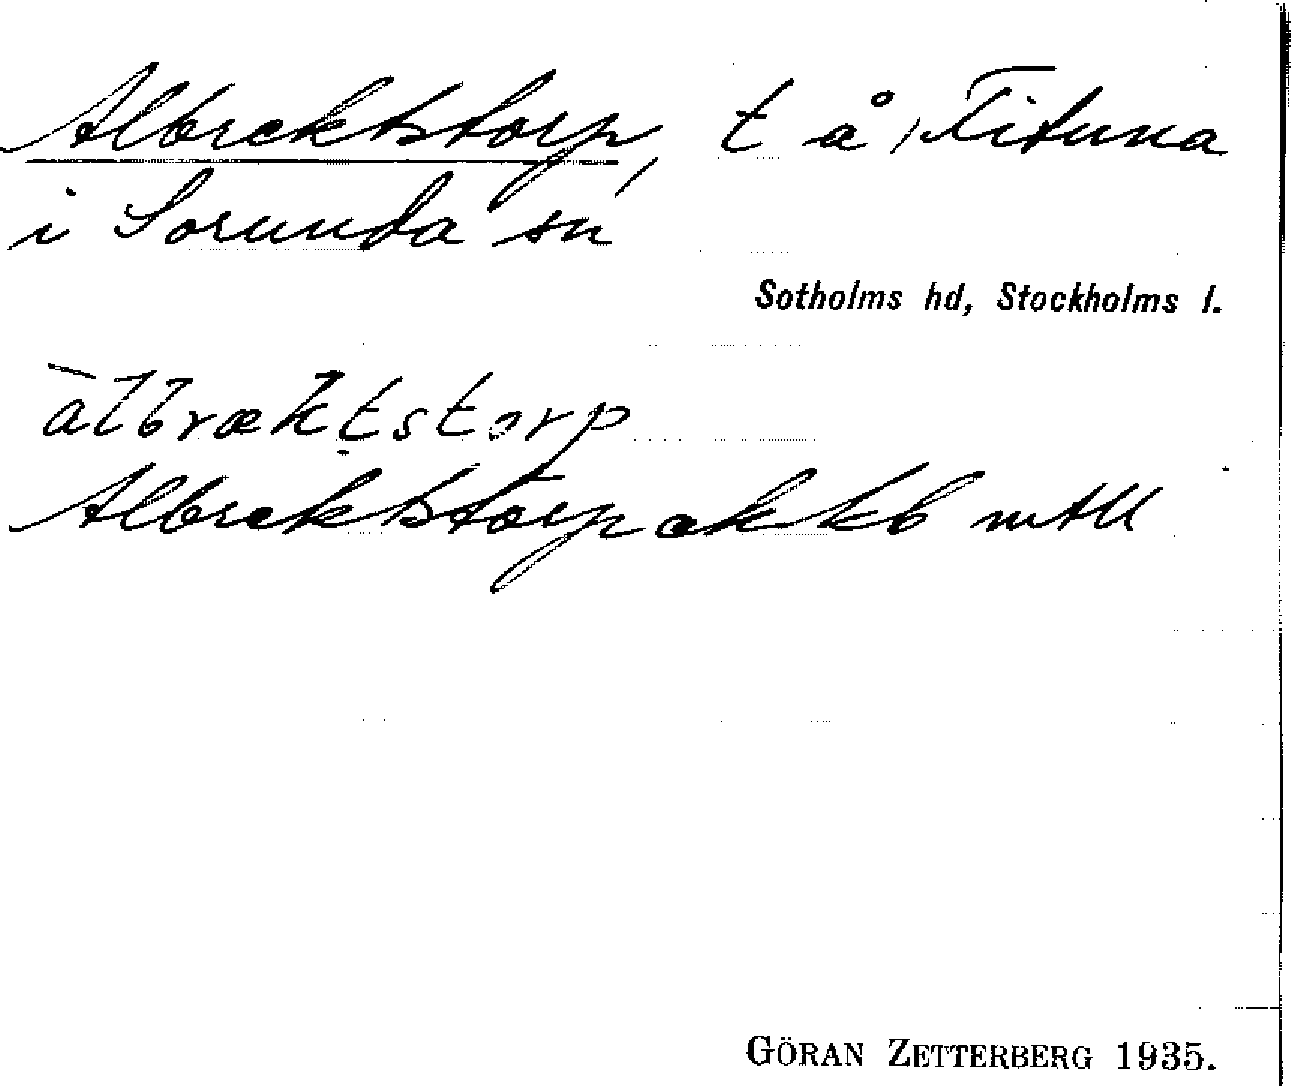 Albrektstorp, t å Fituna
i Sorunda sn
Sotholms hd, Stockholms l.
àlbræktstorp
Albrektstorp ek kb mtll
GÖRAN ZETTERBERG 1935.